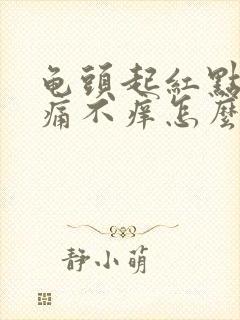 龟頭起紅點
痛不痒怎麼
静小萌